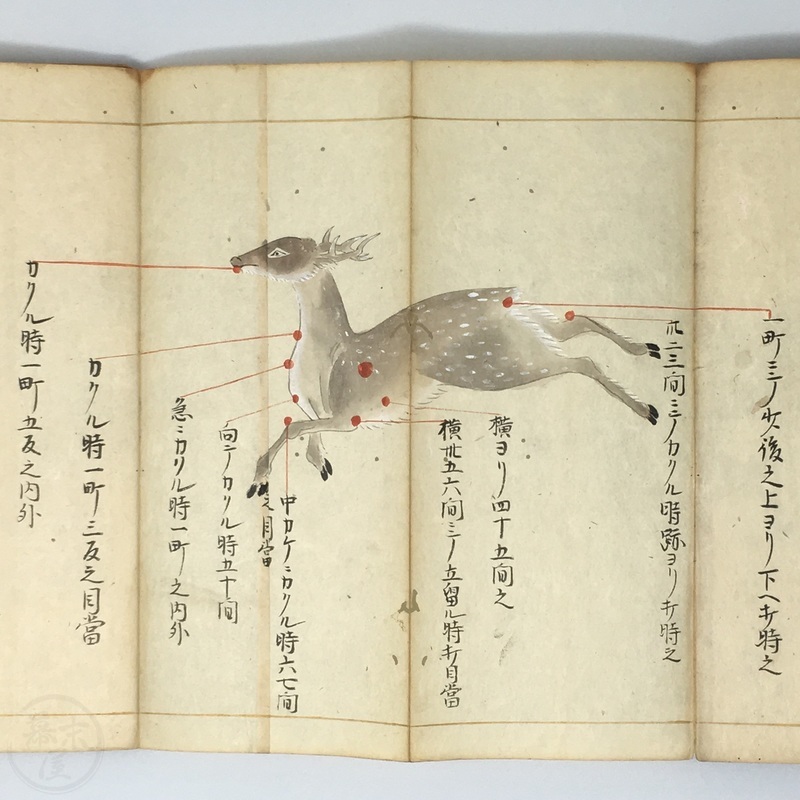 一町ニテ少後之上ヨリ下ヘ打時之
卅二三間ニテカケル時跡ヨリ打時之
横ヨリ四十五間之
横卅五六間ニテ立留ル時打目當
中カケニカケル時六七間
之目當
向テカケル時五十間
急ニカケル時一町之内外
カケル時一町三反之目當
カケル時一町五反之内外